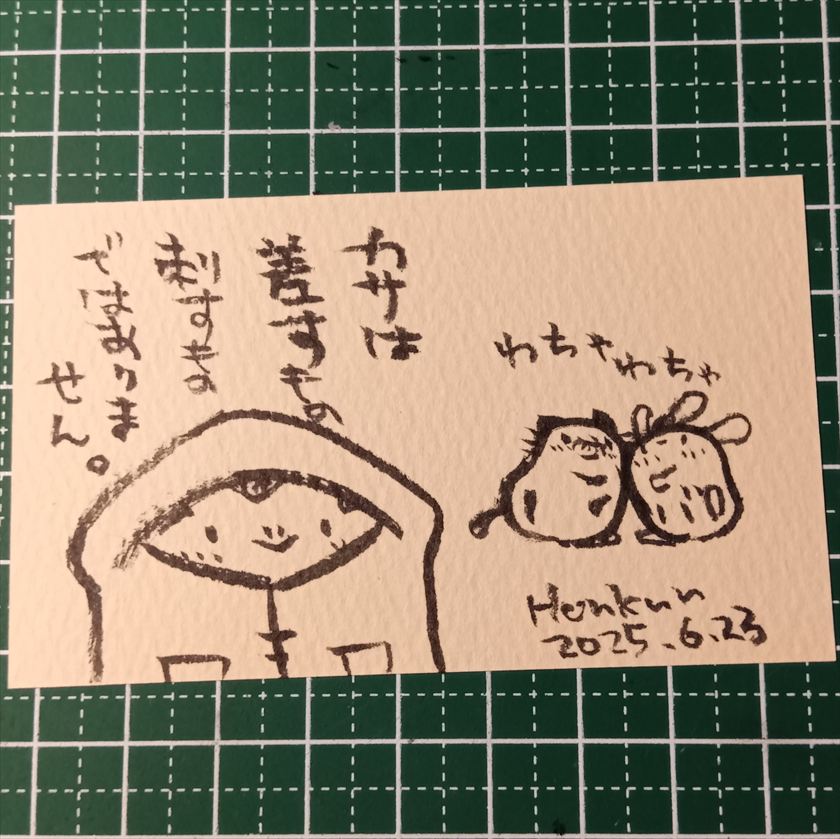 カサは
差すもの
刺すもの
ではありま
せん。
わちゃわちゃ
Honkun
2025.6.23